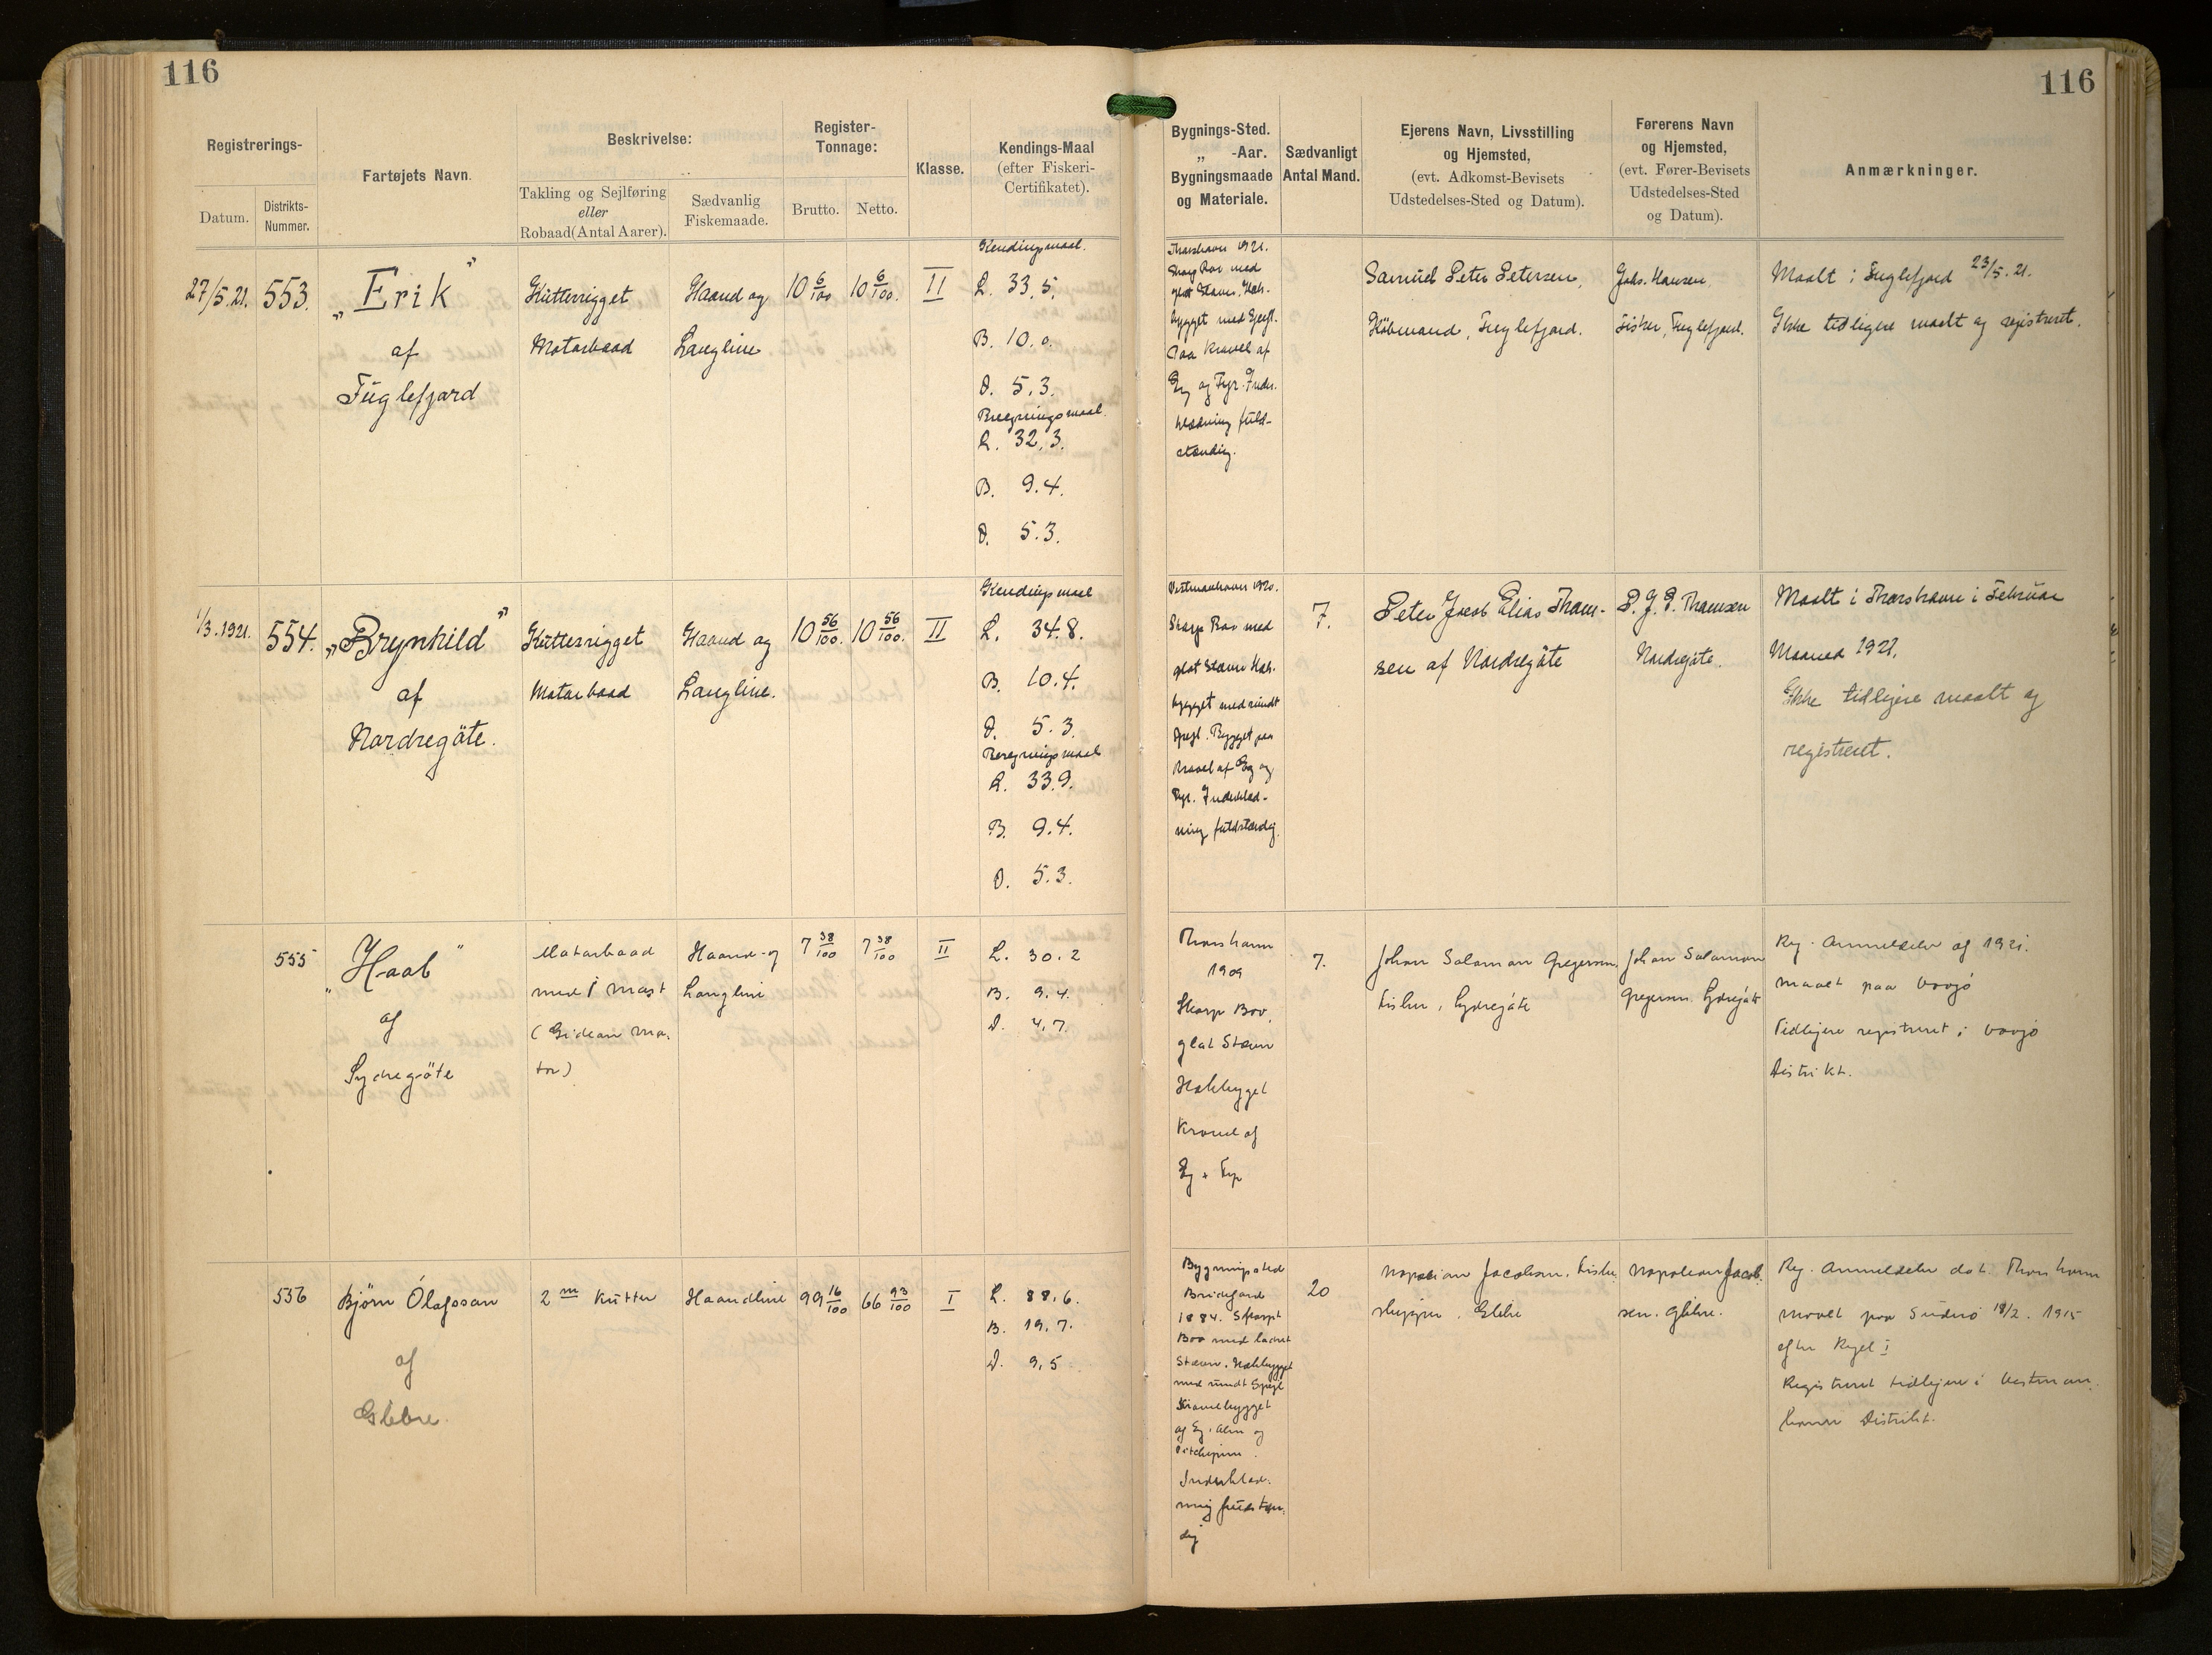 116
116
Registrerings-
Datum.
Distrikts-
Nummer.
Fartøjets Navn.
Beskrivelse:
Takling og Sejlføring
eller
Robaad (Antal Aarer).
Sædvanlig
Fiskemaade.
Register-
Tonnage:
Brutto.
Netto.
Klasse.
Kendings-Maal
(efter Fiskeri-
Certifikatet).
Bygnings-Sted.
„ -Aar.
Bygningsmaade
og Materiale.
Sædvanligt
Antal Mand.
Ejerens Navn, Livsstilling
og Hjemsted,
(evt. Adkomst-Bevisets
Udstedelses-Sted og Datum).
Førerens Navn
og Hjemsted,
(evt. Fører-Bevisets
Udstedelses-Sted
og Datum).
Anmærkninger.
27/5.21.
553.
„Erik”
af
Fuglefjord
Kutterrigget
Motorbaad
Haand og
Langline
10 6/100
10 6/100.
II
Kendingsmaal.
L. 33,5.
B. 10,0.
D. 5,3.
Beregningsmaal.
L. 32,3.
B. 9.4.
D. 5.3.
Thorshavn 1921.
Skarp Bov med
glat Stævn. Hæk-
bygget med Spejl.
Paa Kravel af
Eg og Fyr. Inder-
klædning fuld-
stændig.
Samuel Peter Petersen,
Købmand, Fuglefjord.
Johs. Hansen,
Fisker, Fuglefjord.
Maalt i Fuglefjord 23/5.21.
Ikke tidligere maalt og registreret.
1/3.1921.
554.
„Brynhild”
af
Nordregöte.
Kutterrigget
Motorbaad
Haand og
Langline.
10 56/100.
10 56/100.
II
Kendingsmaal
L. 34.8.
B. 10.4.
D. 5.3.
Beregningsmaal
L. 33.9.
B. 9.4.
D. 5.3.
Vestmanhavn 1920.
Skarp Bov med
glat Stævn Hæk-
bygget med rundt
Spejl. Bygget paa
Kravel af Eg og
Fyr. Inderklæd-
ning fuldstændig.
7.
Peter Jacob Elias Thom-
sen af Nordregöte
P. J. E. Thomsen
Nordregöte.
Maalt i Thorshavn i Februar
Maaned 1921.
Ikke tidligere maalt og
registreret.
555
„Haab”
af
Sydregöte
Motorbaad
med 1 mast
(Gideon mo-
tor)
Haand- og
Langline
7 38/100
7 38/100
II
L. 30.2
B. 9.4.
D. 4,7.
Thorshavn
1909
Skarp Bov,
glat Stævn
Hækbygget
Kravel af
Eg + Fyr
7.
Johan Salomon Gregersen,
Fisker, Sydregöte
Johan Salomon
Gregersen. Sydregöte
Reg. Anmeldelse af 1921.
maalt paa Vaagö
Tidligere registreret i Vaagö
Distrikt.
556
Björn Ólafsson
af
Glibre.
2 m Kutter
Haandline
99 16/100
66 93/100
I
L. 88,6.
B. 19,7.
D. 9,5
Bygningssted
1884. Skarpt
Bov med
Stævn. Hækbygget
med rundt Spejl
Kravelbygget
af Eg, Alm og
Pitchpine.
Inderklæd-
ning fuldstæn-
dig
20
Napoleon Jacobsen, Fisker
skipper. Glibre
Napoleon Jacob-
sen. Glibre.
Reg. Anmeldelse dat. Thorshavn
maalt paa Suderö 18/2. 1915
efter Regel I
Registreret tidligere i Vestman-
havn Distrikt.